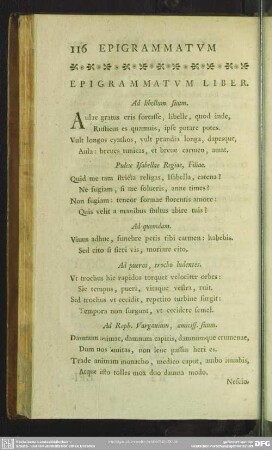 116 EPIGRAMMATVM
EPIGRAMMATVM LIBER.
Ad libellum suum.
Aulae gratus eris fortasse, libelle, quod inde,
Rusticus es quamuis, ipse putare potes.
Vult longos cyathos, vult prandia longa, dapesque,
Aula: breues tunicas, et breue carmen, amat.
Pulex Isabellae Reginae, Filiae.
Quid me tam stricta religas, Isabella, catena?
Ne fugiam, si me solueris, anne times?
Non fugiam: teneor formae florentis amore:
Quis velit a manibus stultus abire tuis?
Ad quendam.
Viuus adhuc, funebre petis tibi carmen: habebis.
Sed cito si fieri vis, moriare cito.
Ad pueros, trocho ludentes.
Vt trochus hic rapidos torquet velociter orbes:
Sic tempus, pueri, vitaque vestra, ruit.
Sed trochus et cecidit, repetito turbine surgit:
Tempora non surgunt, et cecidere semel.
Ad Raph. Varganum, amiciss. suum.
Damnum animae, damnum capitis, damnumque crumenae,
Dum nos amicas, non leue passus heri es.
Trade animam monacho, medico caput, ambo iuuabis,
Atque isto tolles mox duo damna modo.
Nescius